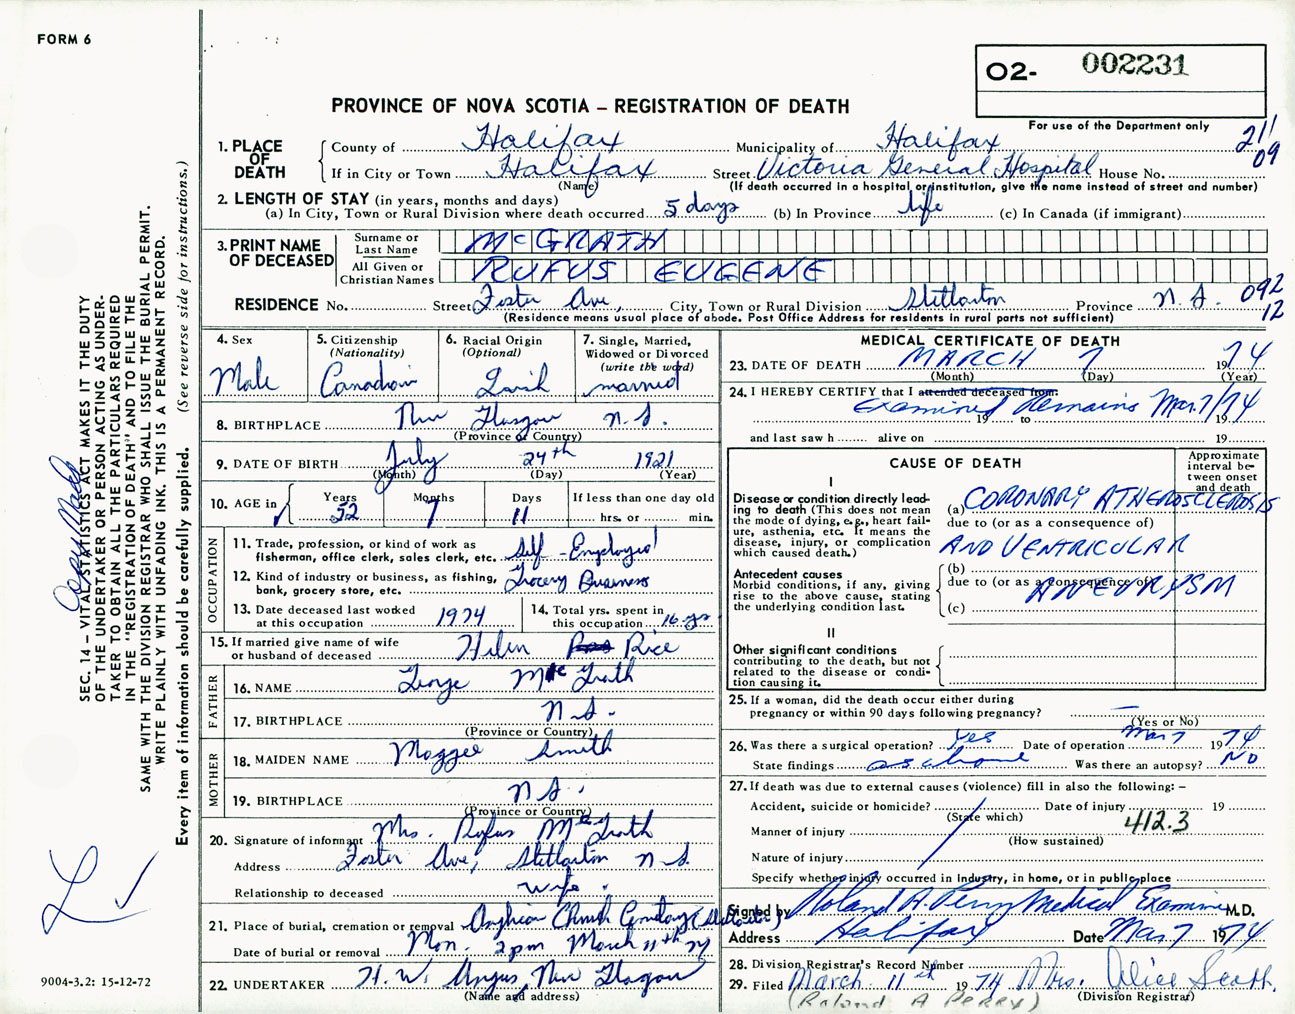 FORM 6
O2- 002231
PROVINCE OF NOVA SCOTIA – REGISTRATION OF DEATH
For use of the Department only
211
09
1. PLACE OF DEATH
County of Halifax Municipality of Halifax
If in City or Town Halifax Street Victoria General Hospital House No.
(Name) (If death occurred in a hospital or institution, give the name instead of street and number)
2. LENGTH OF STAY (in years, months and days)
(a) In City, Town or Rural Division where death occurred 5 days (b) In Province life (c) In Canada (if immigrant)
3. PRINT NAME OF DECEASED
Surname or Last Name McGRATH
All Given or Christian Names RUFUS EUGENE
RESIDENCE No. Street Foster Ave, City, Town or Rural Division Stellarton Province N.S. 092
12
(Residence means usual place of abode. Post Office Address for residents in rural parts not sufficient)
4. Sex
Male
5. Citizenship
(Nationality)
Canadian
6. Racial Origin
(Optional)
7. Single, Married,
Widowed or Divorced
(write the word)
married
8. BIRTHPLACE New Glasgow N.S.
(Province or Country)
9. DATE OF BIRTH July 24th 1921
(Month) (Day) (Year)
10. AGE in Years Months Days If less than one day old
52 7 11 hrs. or min.
OCCUPATION
11. Trade, profession, or kind of work as
fisherman, office clerk, sales clerk, etc. Self-Employed
12. Kind of industry or business, as fishing,
bank, grocery store, etc. Grocery Business
13. Date deceased last worked
at this occupation 1974
14. Total yrs. spent in
this occupation 16 yrs
15. If married give name of wife
or husband of deceased Helen Rice
FATHER
16. NAME George McGrath
17. BIRTHPLACE N.S.
(Province or Country)
MOTHER
18. MAIDEN NAME Maggie Smith
19. BIRTHPLACE N.S.
(Province or Country)
20. Signature of informant Mrs. Rufus McGrath
Address Foster Ave, Stellarton N.S.
Relationship to deceased wife.
21. Place of burial, cremation or removal Anglican Church Cemetery (Stellarton)
Date of burial or removal Mon. 2pm March 11th 74
22. UNDERTAKER H. W. Angus, New Glasgow
(Name and address)
MEDICAL CERTIFICATE OF DEATH
23. DATE OF DEATH MARCH 7 1974
(Month) (Day) (Year)
24. I HEREBY CERTIFY that I attended deceased from:
Examined Remains Mar. 7/74
19 to 19
and last saw h alive on 19
CAUSE OF DEATH
Approximate interval between onset and death
I
Disease or condition directly leading to death (This does not mean the mode of dying, e.g., heart failure, asthenia, etc. It means the disease, injury, or complication which caused death.)
(a) CORONARY ATHEROSCLEROSIS
due to (or as a consequence of)
AND VENTRICULAR
Antecedent causes
Morbid conditions, if any, giving rise to the above cause, stating the underlying condition last.
(b)
due to (or as a consequence of)
ANEURYSM
(c)
II
Other significant conditions
contributing to the death, but not related to the disease or condition causing it.
25. If a woman, did the death occur either during
pregnancy or within 90 days following pregnancy?
(Yes or No)
26. Was there a surgical operation? Yes Date of operation Mar 7 1974
State findings as above Was there an autopsy? NO
27. If death was due to external causes (violence) fill in also the following: –
Accident, suicide or homicide? Date of injury 19
(State which)
Manner of injury 412.3
(How sustained)
Nature of injury
Specify whether injury occurred in Industry, in home, or in public place
Signed by Roland A. Perry Medical Examiner M.D.
Address Halifax Date Mar. 7 1974
28. Division Registrar's Record Number
29. Filed March 11th 1974 Mrs. Alice Scott.
(Division Registrar)
(Roland A Perry)
SEC. 14 – VITAL STATISTICS ACT MAKES IT THE DUTY
OF THE UNDERTAKER OR PERSON ACTING AS UNDER-
TAKER TO OBTAIN ALL THE PARTICULARS REQUIRED
IN THE "REGISTRATION OF DEATH" AND TO FILE THE
SAME WITH THE DIVISION REGISTRAR WHO SHALL ISSUE THE BURIAL PERMIT.
WRITE PLAINLY WITH UNFADING INK. THIS IS A PERMANENT RECORD.
Every item of information should be carefully supplied. (See reverse side for instructions.)
Copy Made
9004-3.2: 15-12-72